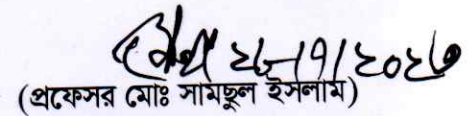 ২৮/৭/২০২৩
(প্রফেসর মোঃ সামছুল ইসলাম)